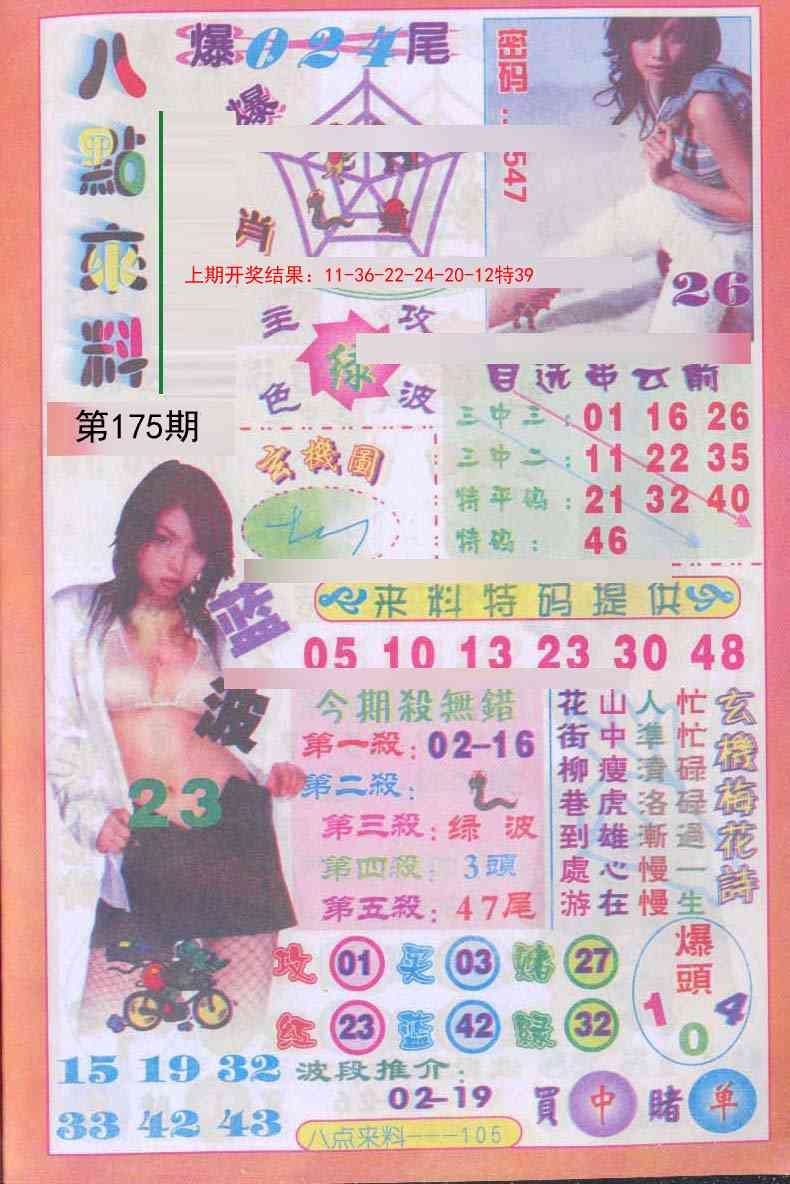 八點來料
爆024尾
爆
肖
密码
547
26
上期开奖结果：11-36-22-24-20-12特39
主攻
绿
色波
第175期
玄機圖
三中三：01 16 26
三中二：11 22 35
特平码：21 32 40
特码：46
来料特码提供
05 10 13 23 30 48
蓝波
23
今期殺無錯
第一殺：02-16
第二殺：
第三殺：绿波
第四殺：3頭
第五殺：47尾
玄機梅花詩
忙忙碌碌過一生
人準清洛漸慢慢
山中瘦虎雄心在
花街柳巷到處游
攻 01 买 03 赌 27
红 23 蓝 42 绿 32
爆頭
1 0 4
15 19 32
33 42 43
波段推介：
02-19
買中賭单
八点来料---105